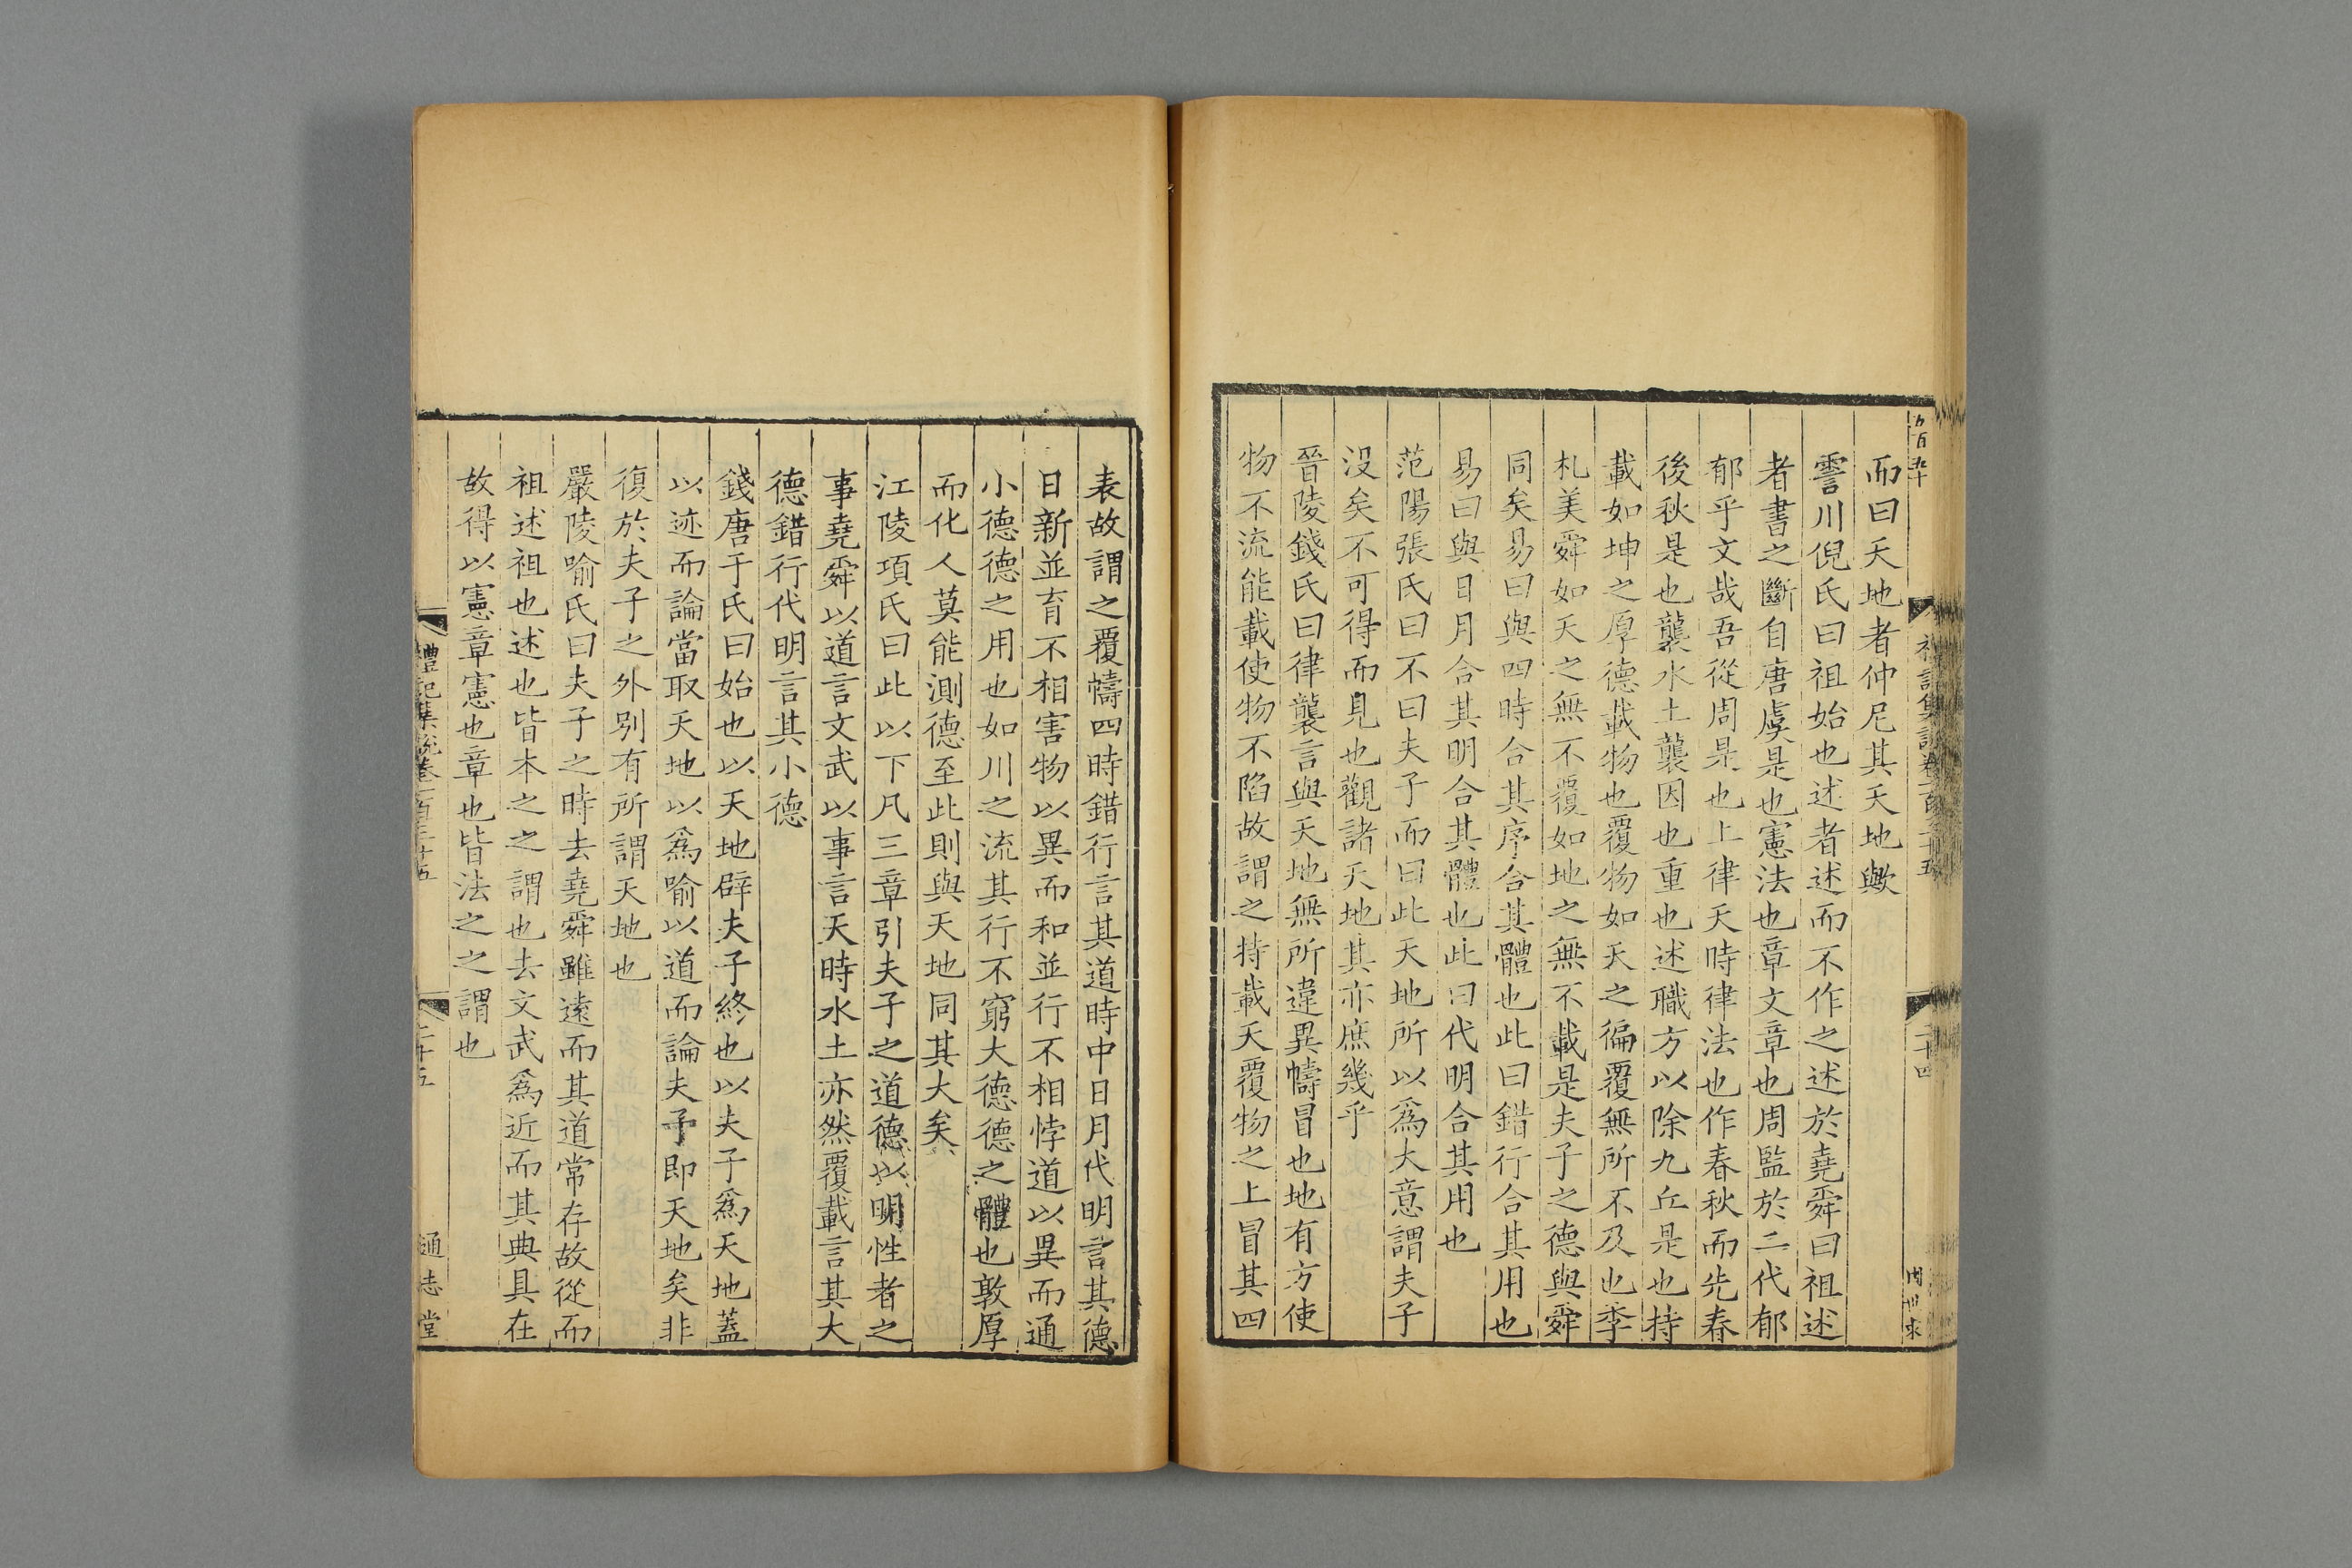 而曰天地者仲尼其天地歟
霅川倪氏曰祖始也述者述而不作之述於堯舜曰祖述
者書之斷自唐虞是也憲法也章文章也周監於二代郁
郁乎文哉吾從周是也上律天時律法也作春秋而先春
後秋是也襲水土襲因也重也述職方以除九丘是也持
載如坤之厚德載物也覆物如天之徧覆無所不及也季
札美舜如天之無不覆如地之無不載是夫子之德與舜
同矣易曰與四時合其序合其體也此曰錯行合其用也
易曰與日月合其明合其體也此曰代明合其用也
范陽張氏曰不曰夫子而曰此天地所以爲大意謂夫子
没矣不可得而見也觀諸天地其亦庶幾乎
晉陵錢氏曰律襲言與天地無所違異幬冒也地有方使
物不流能載使物不陷故謂之持載天覆物之上冒其四
表故謂之覆幬四時錯行言其道時中日月代明言其德
日新並育不相害物以異而和並行不相悖道以異而通
小德德之用也如川之流其行不窮大德德之體也敦厚
而化人莫能測德至此則與天地同其大矣
江陵項氏曰此以下凡三章引夫子之道德以明性者之
事堯舜以道言文武以事言天時水土亦然覆載言其大
德錯行代明言其小德
錢唐于氏曰始也以天地辟夫子終也以夫子爲天地蓋
以迹而論當取天地以爲喻以道而論夫子即天地矣非
復於夫子之外別有所謂天地也
嚴陵喻氏曰夫子之時去堯舜雖遠而其道常存故從而
祖述祖也述也皆本之之謂也去文武爲近而其典具在
故得以憲章憲也章也皆法之之謂也
禮記集說卷一百三十五 二十五 通志堂